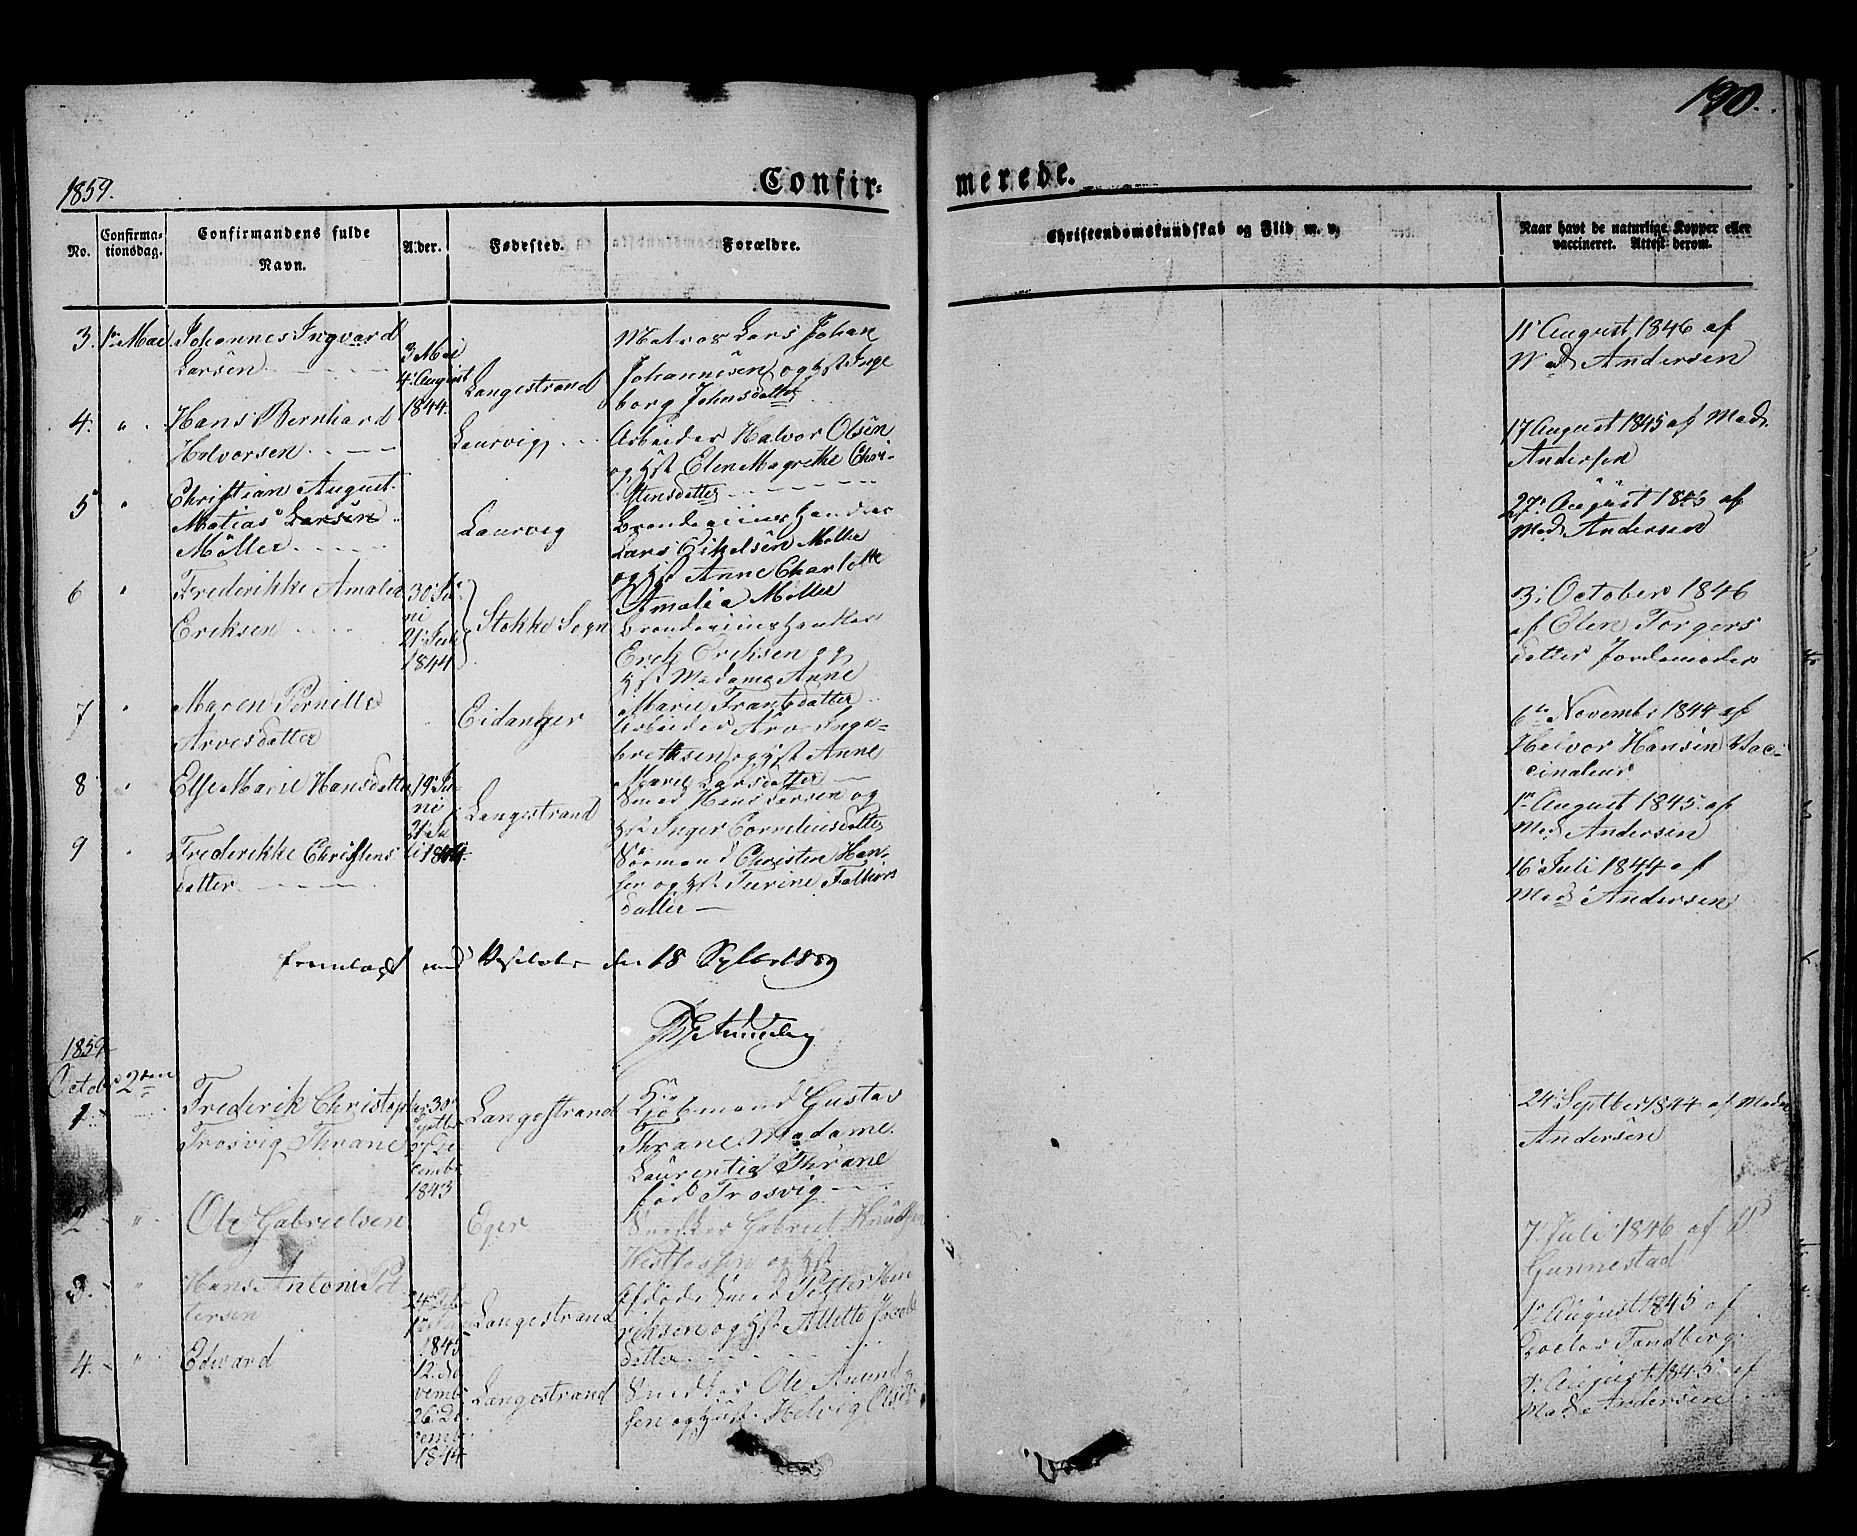 190.
1859.
Confir-
merede.
No.
Confirma-
tionsdag.
Confirmandens fulde
Navn.
Alder.
Fødested.
Forældre.
Christendomskundskab og Flid m. v.
Naar havt de naturlige Kopper eller
vaccineret. Attest derom.
3. 1ste Mai Johannes Ingvard
Larsen
3 Mai
4 August
1844
Langestrand
Matros Lars Johan
Johannesen og Hst Inge
borg Johnsdatter
11 August 1846 af
Mad Andersen
4. " Hans Bernhard
Halvorsen
Laurvig
Arbeider Halvor Olsen
og Hst Elen Magrethe Chri-
stensdatter
17 August 1845 af Mad.
Andersen
5 " Christian August
Matias Larsen
Møller
Laurvig
Lars Eskelsen Møller
og Hst Anne Charlotte
Amalia Møller
27. August 1845 af
Mad Andersen
6 " Frederikke Amalia
Eriksen
30 Ju
ni
21 Juli
1844
Stokke Sogn
Erik Eriksen og
Hst Madame Anne
Marie Frantsdatter
3. October 1846
af Elen Torgers
datter Jordemoder
7 " Maren Pernille
Arvesdatter
Eidanger
Arbeider Arve Inge-
brethsen og Hst Anne
Marie Larsdatter
6te Novembr 1844 af
Halvor Hansen Vac-
cinateur
8 " Else Marie Hansdatter
19 Ju
ni
21 Ju
li 1844
Langestrand
Smed Hans Larsen og
Hst Inger Corneliusdatter
1ste August 1845 af
Mad Andersen
9 " Frederikke Christens
datter
Sømand Christen Han-
sen og Hst Turine Falkers
datter
16 Juli 1844 af
Mad Andersen
fremlagt ved Visitats den 18 Septbr 1859
1859
October 2den
1. Frederik Christopher
Trosvig Thrane
30
Septbr
07 De
cembr
1843
Langestrand
Kjøbmand Gustav
Thrane Madame
Laurentia Thrane
fød Trosvig
24 Septber 1844 af Mad
Andersen
2 " Ole Gabrielsen
Eger
Snedker Gabriel Knudsen
og Hst
7 Juli 1846 af P
Gunnestad
3. " Hans Antoni Pet
tersen
1845
Langestrand
Afdøde Smed Petter Hen
riksen og Hst Alette Jacob
datter
1ste August 1845 af
Doctor Tandberg
4. " Edward
12. No
vembr
26 De
cembr
1844
Langestrand
Snedker Ole Amund
sen og Hust. Helvig Olsdt
1 August 1845 af
Mad Andersen